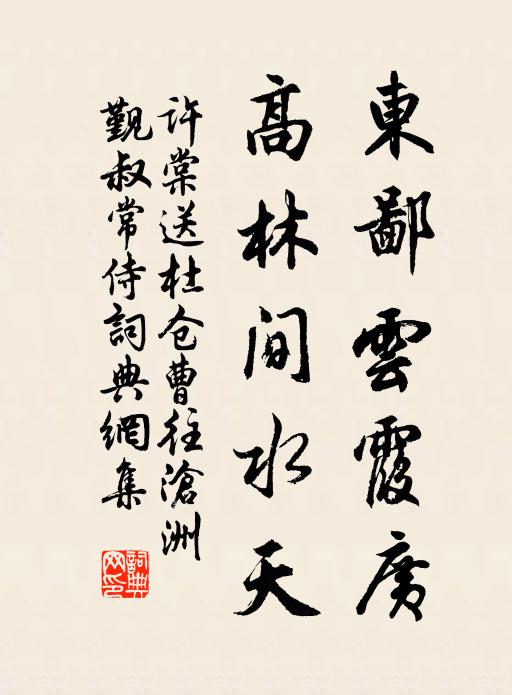 東鄙雲霞廣
高林間水天
許棠送杜仓曹往滄洲
觐叔常侍詞典網集
詞典網印